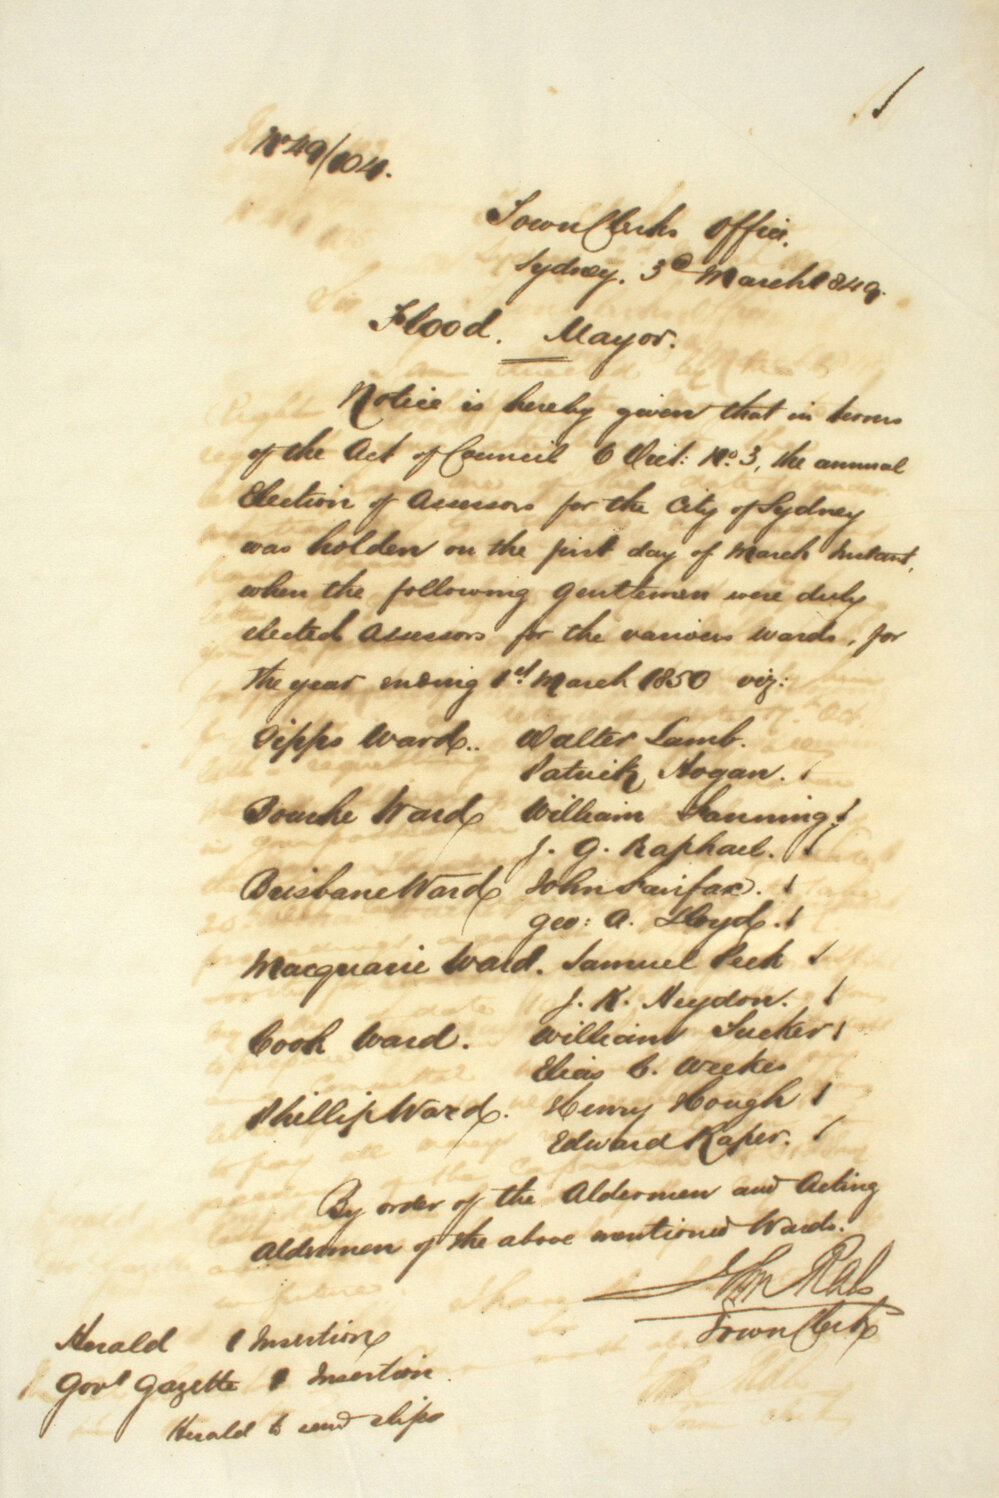 No 49/104.
Town Clerks Office.
Sydney. 3d March 1849.
Flood. Mayor.
Notice is hereby given that in terms
of the Act of Council 6 Vict: No. 3, the annual
Election of Assessors for the City of Sydney
was holden on the first day of March Instant,
when the following Gentlemen were duly
elected Assessors for the various wards, for
the year ending 1st March 1850 viz:
Gipps Ward.. Walter Lamb.
Patrick Hogan.
Bourke Ward William Fanning
J. G. Raphael.
Brisbane Ward John Fairfax.
Geo: A. Lloyd.
Macquarie Ward. Samuel Peek
J. K. Heydon.
Cook Ward. William Tucker
Elias C. Weekes
Phillip Ward. Henry Hough
Edward Raper.
By order of the Aldermen and Acting
Aldermen of the above mentioned Wards.
John Rae
Town Clerk
Herald 1 Insertion
Govt Gazette 1 Insertion.
Herald to send slips